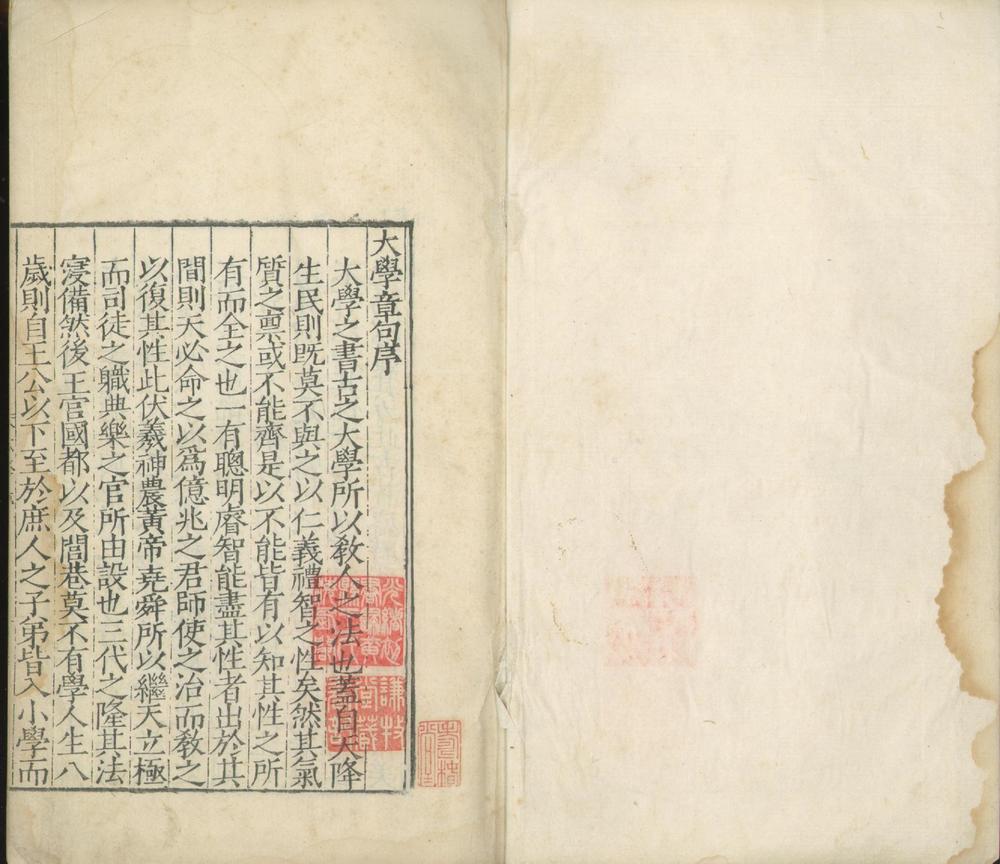 大學章句序
大學之書古之大學所以敎人之法也蓋自天降
生民則既莫不與之以仁義禮智之性矣然其氣
質之稟或不能齊是以不能皆有以知其性之所
有而全之也一有聰明睿智能盡其性者出於其
間則天必命之以爲億兆之君師使之治而敎之
以復其性此伏羲神農黃帝堯舜所以繼天立極
而司徒之職典樂之官所由設也三代之隆其法
寖備然後王宮國都以及閭巷莫不有學人生八
歲則自王公以下至於庶人之子弟皆入小學而
謙牧堂藏書記